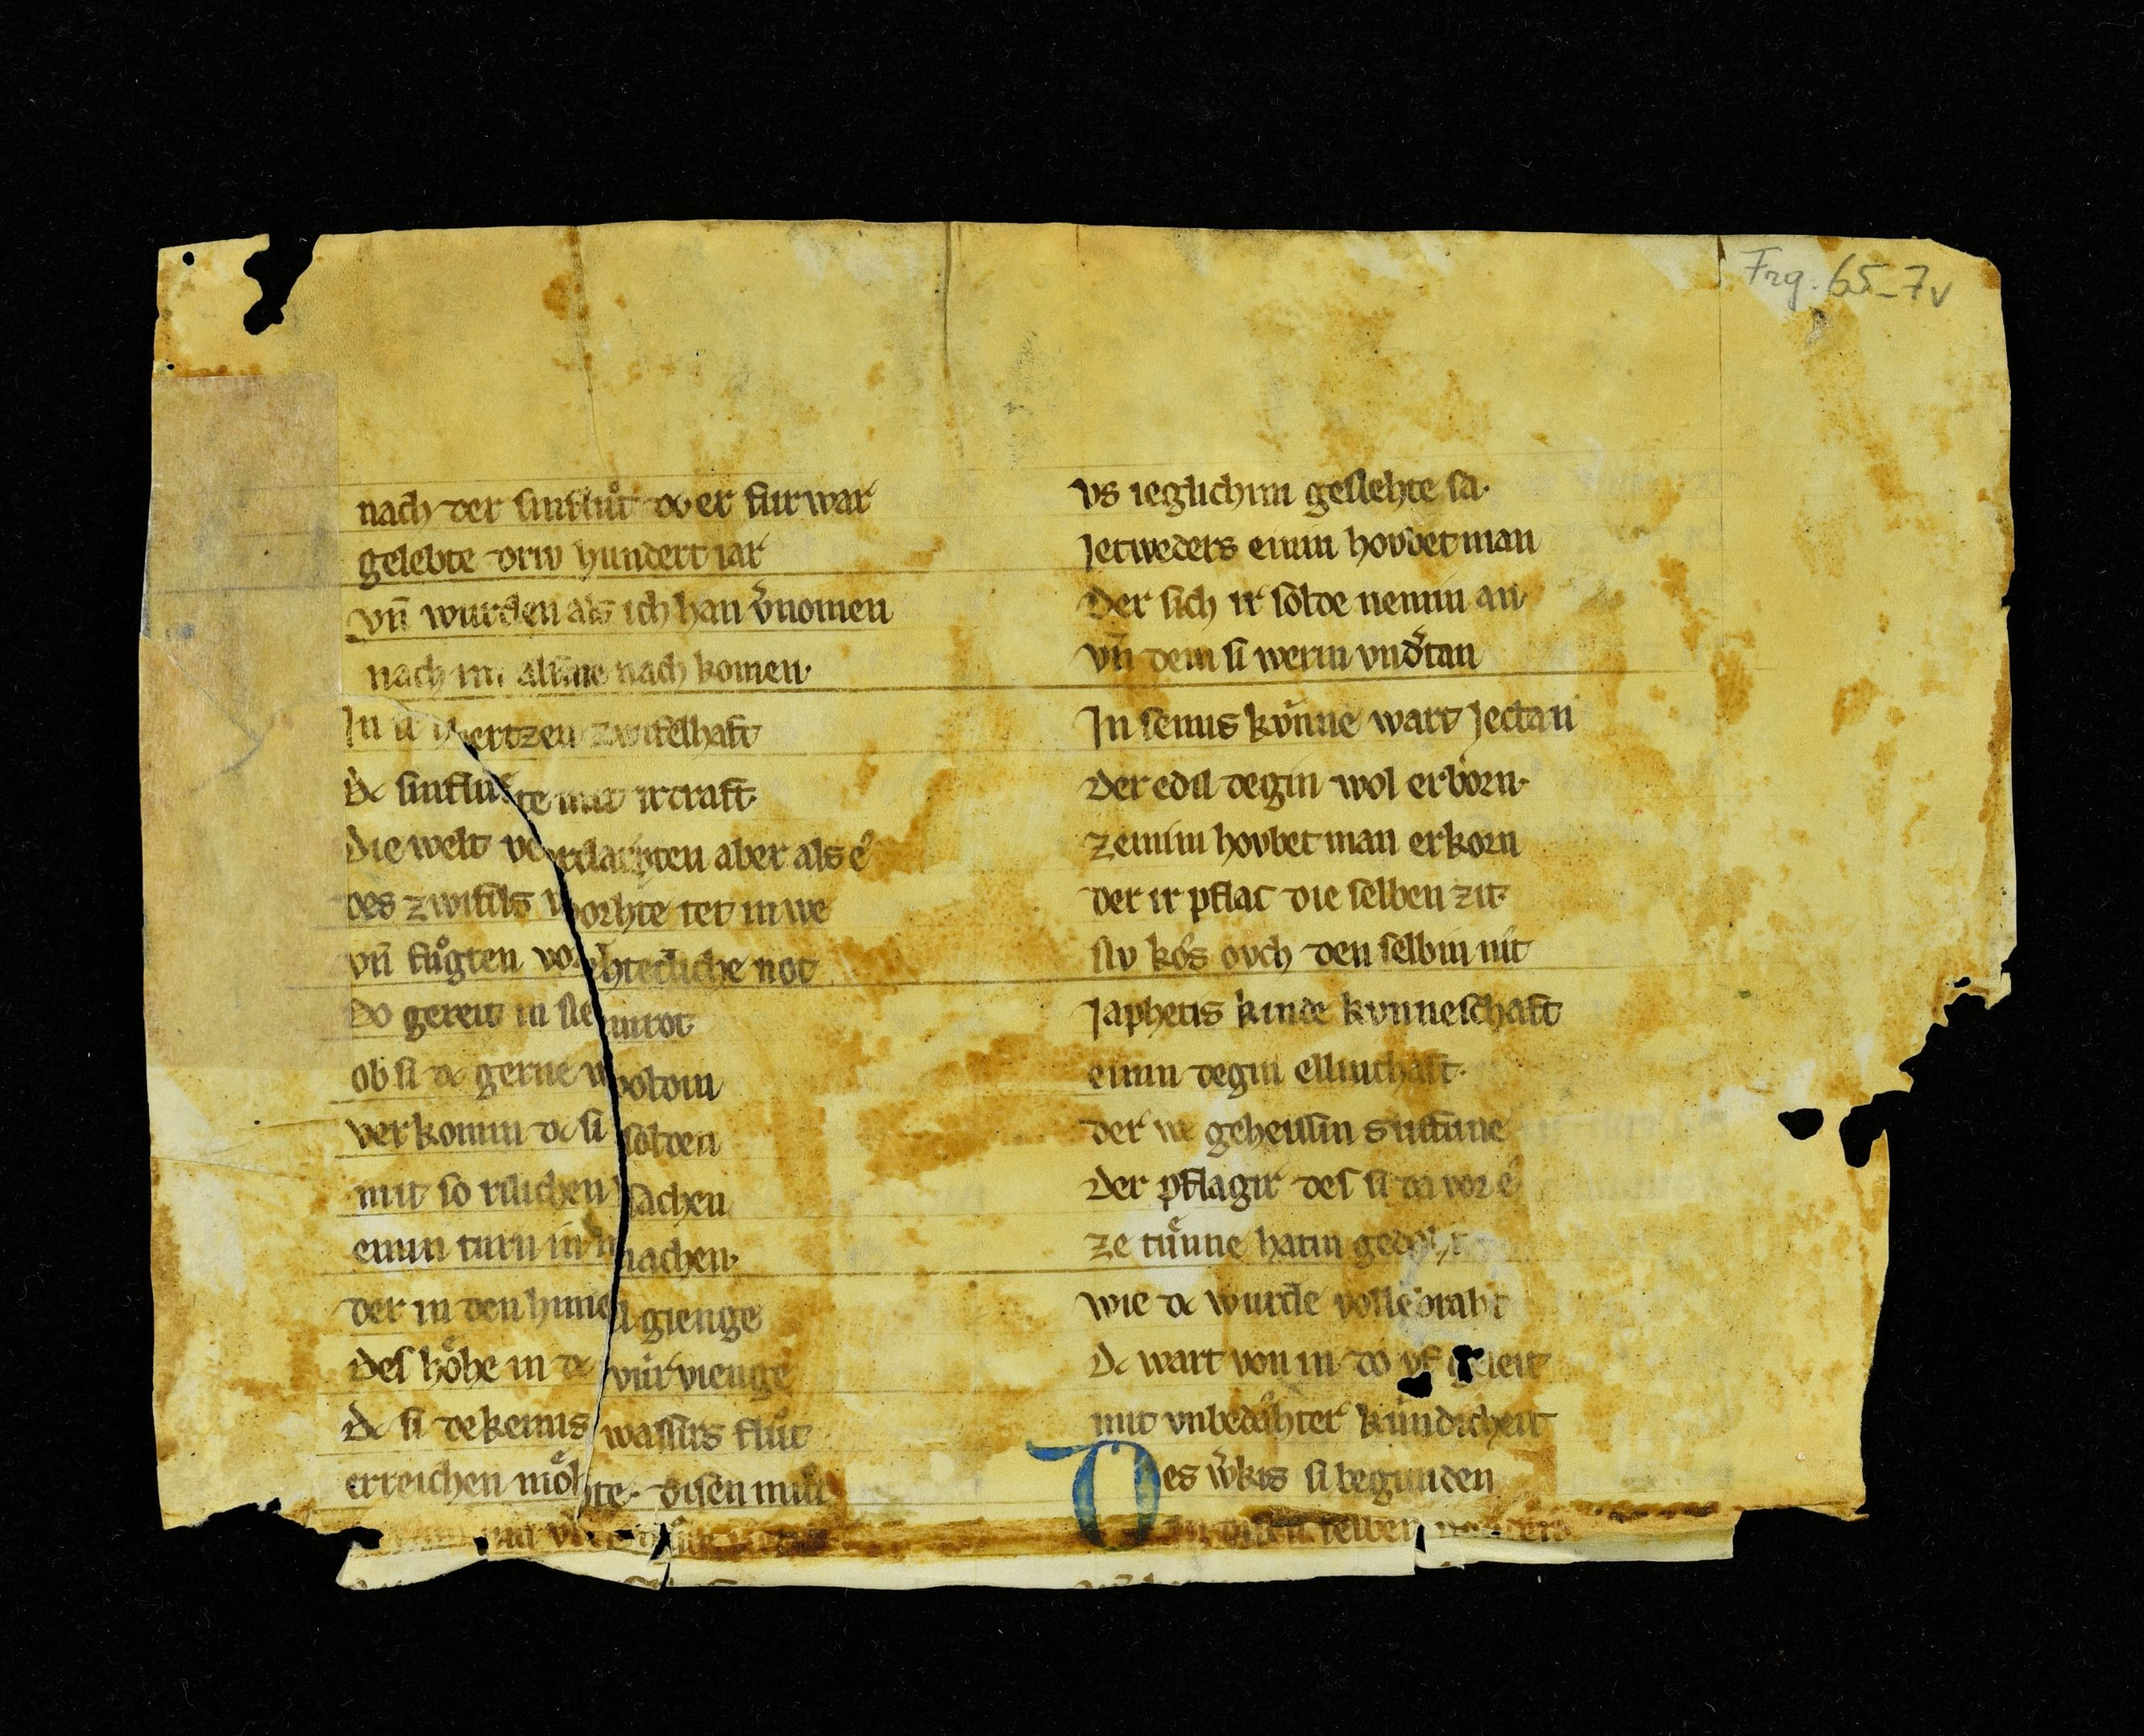 Frg. 65-7v
nach der sinflůt dc er fur war
gelebte driv hundert iar
vn̄ wurden als ich han v̓nomen
nach im nach komen·
hertzen zwifelhaft
dc mit ir craft·
die welt aber als é
des zwifils vorhte tet in we
vn̄ fůgten not
do gereit in
ob si dc gerne woldin
verkomin dc si solden
mit so richen sachen
einin turn machen·
der in den himel gienge
des höhe in dc fürvienge
dc si dekeinis wassirs flůt
erreichen möhte· disen
vs ieglichim geslehte sa·
Jetweders einin hovbetman
der sich ir solde nemin an·
vn̄ dem si werin vnd̓tan
In semis kv́nne wart Jectan
der edil degin wol erborn·
zeinim hovbet man erkorn
der ir pflac die selben zit·
siv kós ovch den selbin nit
Japhetis kinde kvnneschaft
einin degin ellinthaft·
der wc geheissin
der pflagir des si da vor é
ze tůnne hatin gedaht
wie dc wurde vollebraht
dc wart von in do vf geleit
mit vnbedahter kündicheit
Des w̓kis si begunden
selben